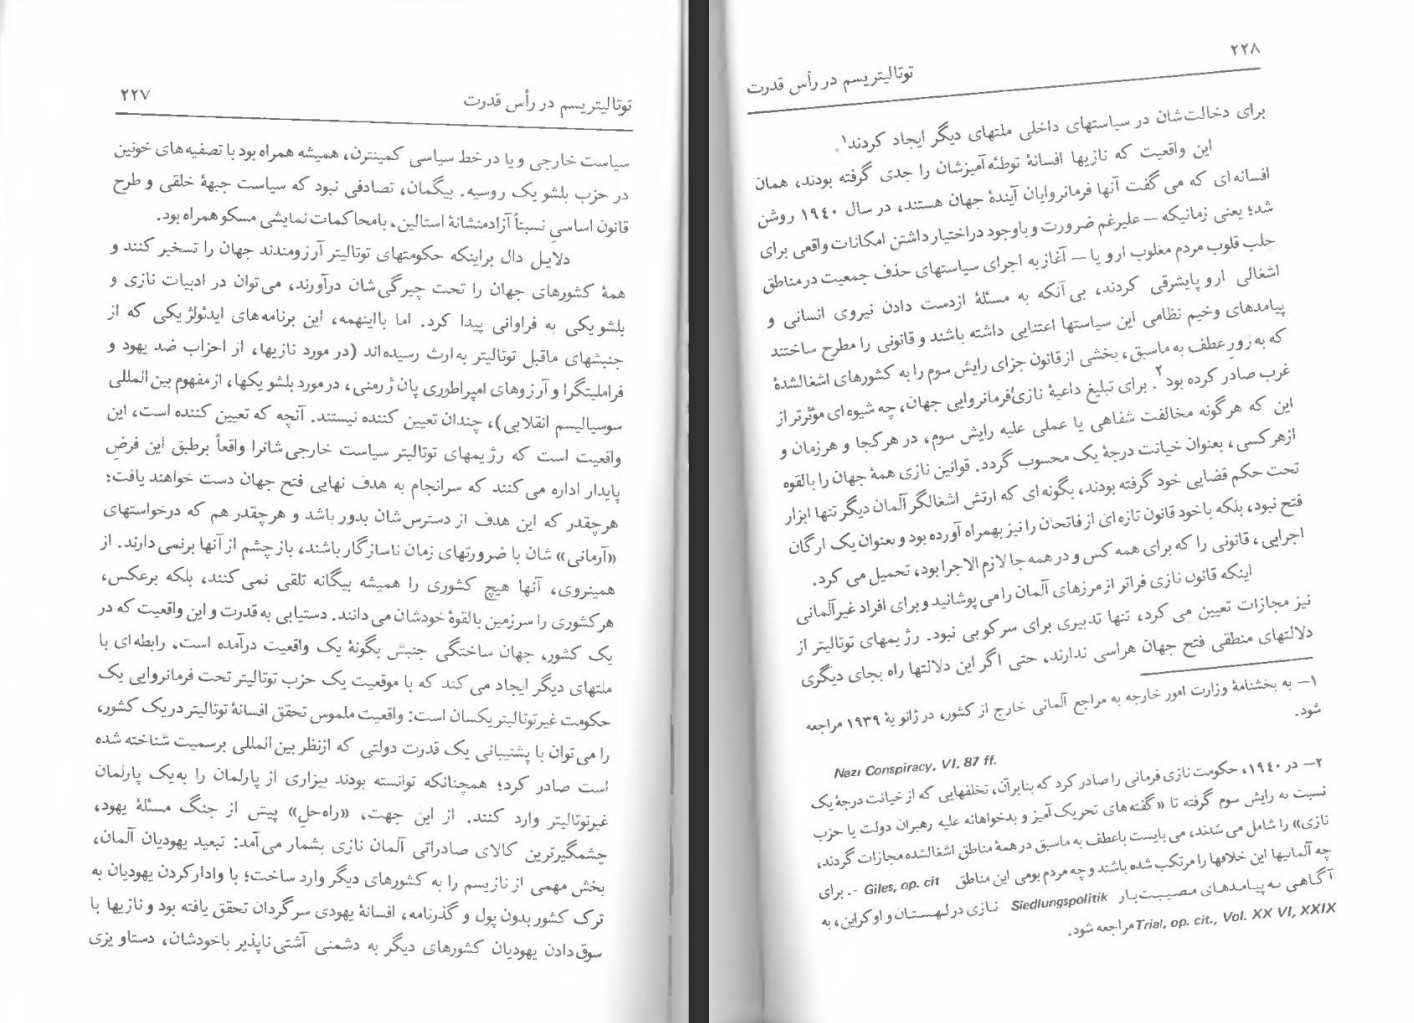 توتالیتریسم در رأس قدرت ۲۲۷
سیاست خارجی و یا در خط سیاسی کمینترن، همیشه همراه بود با تصفیه‌های خونین
در حزب بلشویک روسیه. بیگمان، تصادفی نبود که سیاست جبههٔ خلقی و طرح
قانون اساسیِ نسبتاً آزادمنشانهٔ استالین، با محاکمات نمایشی مسکو همراه بود.
دلایل دال براینکه حکومتهای توتالیتر آرزومندند جهان را تسخیر کنند و
همهٔ کشورهای جهان را تحت چیرگی‌شان درآورند، می‌توان در ادبیات نازی و
بلشویکی به فراوانی پیدا کرد. اما بااینهمه، این برنامه‌های ایدئولژیکی که از
جنبشهای ماقبل توتالیتر به‌ارث رسیده‌اند (در مورد نازیها، از احزاب ضد یهود و
فراملیتگرا و آرزوهای امپراطوری پان ژرمنی، در مورد بلشویکها، از مفهوم بین‌المللی
سوسیالیسم انقلابی)، چندان تعیین کننده نیستند. آنچه که تعیین کننده است، این
واقعیت است که رژیمهای توتالیتر سیاست خارجی‌شانرا واقعاً برطبق این فرضِ
پایدار اداره می‌کنند که سرانجام به هدف نهایی فتح جهان دست خواهند یافت؛
هرچقدر که این هدف از دسترس‌شان بدور باشد و هرچقدر هم که درخواستهای
«آرمانی» شان با ضرورتهای زمان ناسازگار باشند، باز چشم از آنها برنمی‌دارند. از
همینروی، آنها هیچ کشوری را همیشه بیگانه تلقی نمی‌کنند، بلکه برعکس،
هر کشوری را سرزمین بالقوهٔ خودشان می‌دانند. دستیابی به قدرت و این واقعیت که در
یک کشور، جهان ساختگی جنبش بگونهٔ یک واقعیت درآمده است، رابطه‌ای با
ملتهای دیگر ایجاد می‌کند که با موقعیت یک حزب توتالیتر تحت فرمانروایی یک
حکومت غیرتوتالیتر یکسان است: واقعیت ملموس تحقق افسانهٔ توتالیتر در یک کشور،
را می‌توان با پشتیبانی یک قدرت دولتی که ازنظر بین‌المللی برسمیت شناخته شده
است صادر کرد؛ همچنانکه توانسته بودند بیزاری از پارلمان را به‌یک پارلمان
غیرتوتالیتر وارد کنند. از این جهت، «راه‌حلِ» پیش از جنگ مسئلهٔ یهود،
چشمگیرترین کالای صادراتی آلمان نازی بشمار می‌آمد: تبعید یهودیان آلمان،
بخش مهمی از نازیسم را به کشورهای دیگر وارد ساخت؛ با وادار کردن یهودیان به
ترک کشور بدون پول و گذرنامه، افسانهٔ یهودی سرگردان تحقق یافته بود و نازیها با
سوق دادن یهودیان کشورهای دیگر به دشمنی آشتی‌ناپذیر باخودشان، دستاویزی
۲۲۸ توتالیتریسم در رأس قدرت
برای دخالت‌شان در سیاستهای داخلی ملتهای دیگر ایجاد کردند۱.
این واقعیت که نازیها افسانهٔ توطئه‌آمیزشان را جدی گرفته بودند، همان
افسانه‌ای که می‌گفت آنها فرمانروایان آیندهٔ جهان هستند، در سال ۱۹۴۰ روشن
شد؛ یعنی زمانیکه — علیرغم ضرورت و باوجود دراختیار داشتن امکانات واقعی برای
جلب قلوب مردم مغلوب اروپا — آغاز به اجرای سیاستهای حذف جمعیت در مناطق
اشغالی اروپایشرقی کردند، بی‌آنکه به مسئلهٔ ازدست دادن نیروی انسانی و
پیامدهای وخیم نظامی این سیاستها اعتنایی داشته باشند و قانونی را مطرح ساختند
که به زورِ عطف به ماسبق، بخشی از قانون جزای رایش سوم را به کشورهای اشغالشدهٔ
غرب صادر کرده بود۲. برای تبلیغ داعیهٔ نازی فرمانروایی جهان، چه شیوه‌ای مؤثرتر از
این که هرگونه مخالفت شفاهی یا عملی علیه رایش سوم، در هرکجا و هرزمان و
ازهرکسی، بعنوان خیانت درجهٔ یک محسوب گردد. قوانین نازی همهٔ جهان را بالقوه
تحت حکم قضایی خود گرفته بودند، بگونه‌ای که ارتش اشغالگر آلمان دیگر تنها ابزار
فتح نبود، بلکه با خود قانون تازه‌ای از فاتحان را نیز بهمراه آورده بود و بعنوان یک ارگان
اجرایی، قانونی را که برای همه کس و در همه جا لازم الاجرا بود، تحمیل می کرد.
اینکه قانون نازی فراتر از مرزهای آلمان را می پوشانید و برای افراد غیرآلمانی
نیز مجازات تعیین می کرد، تنها تدبیری برای سرکوبی نبود. رژیمهای توتالیتر از
دلالتهای منطقی فتح جهان هراسی ندارند، حتی اگر این دلالتها راه بجای دیگری
۱— به بخشنامهٔ وزارت امور خارجه به مراجع آلمانی خارج از کشور، در ژانویهٔ ۱۹۳۹ مراجعه
شود.
Nazi Conspiracy, VI, 87 ff.
۲— در ۱۹۴۰، حکومت نازی فرمانی را صادر کرد که بنابرآن، تخلفهایی که از خیانت درجهٔ یک
نسبت به رایش سوم گرفته تا «گفته‌های تحریک آمیز و بدخواهانه علیه رهبران دولت یا حزب
نازی» را شامل می شدند، می بایست باعطف به ماسبق در همهٔ مناطق اشغالشده مجازات گردند،
چه آلمانیها این خلافها را مرتکب شده باشند و چه مردم بومی این مناطق Giles, op. cit -. برای
آگاهی به پیامدهای مصیبت‌بار Siedlungspolitik نازی در لهستان و اوکراین، به
Trial, op. cit., Vol. XX VI, XXIX مراجعه شود.